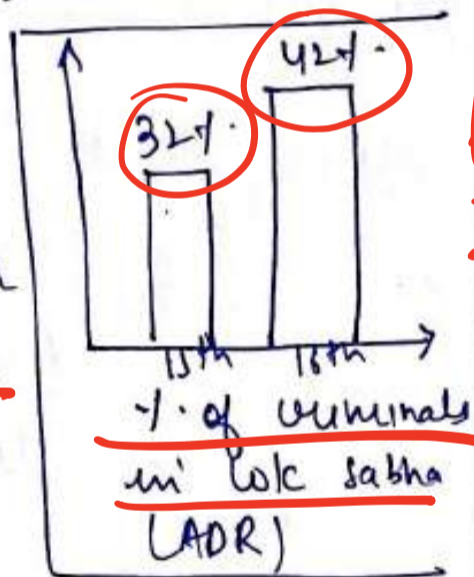 32%.
42%.
15th 16th
% of criminals
in lok sabha
(ADR)